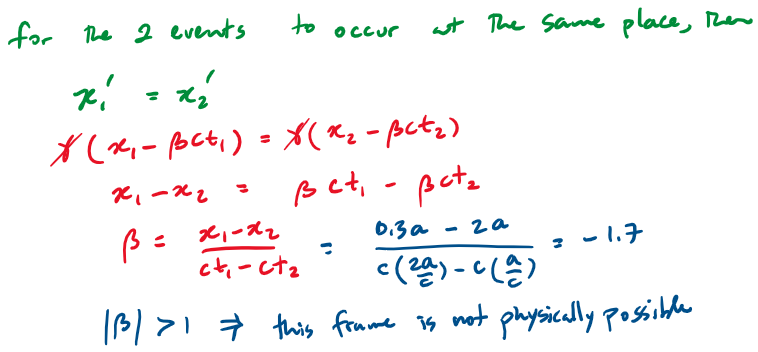 for the 2 events to occur at the same place, then
x₁' = x₂'
γ(x₁ - βct₁) = γ(x₂ - βct₂)
x₁ - x₂ = βct₁ - βct₂
β = (x₁ - x₂)/(ct₁ - ct₂) = (0.3a - 2a)/(c(2a/c) - c(a/c)) = -1.7
|β| > 1 ⇒ this frame is not physically possible